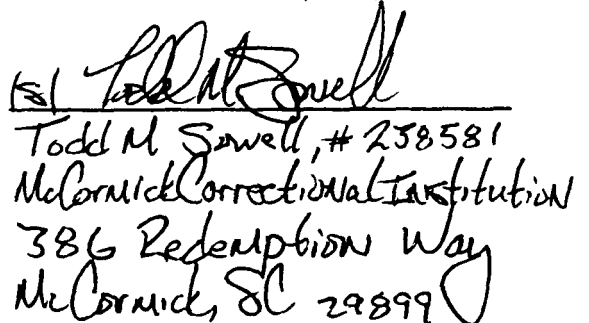 /s/ Todd M Sowell
Todd M Sowell, # 238581
McCormick Correctional Institution
386 Redemption Way
McCormick, SC 29899